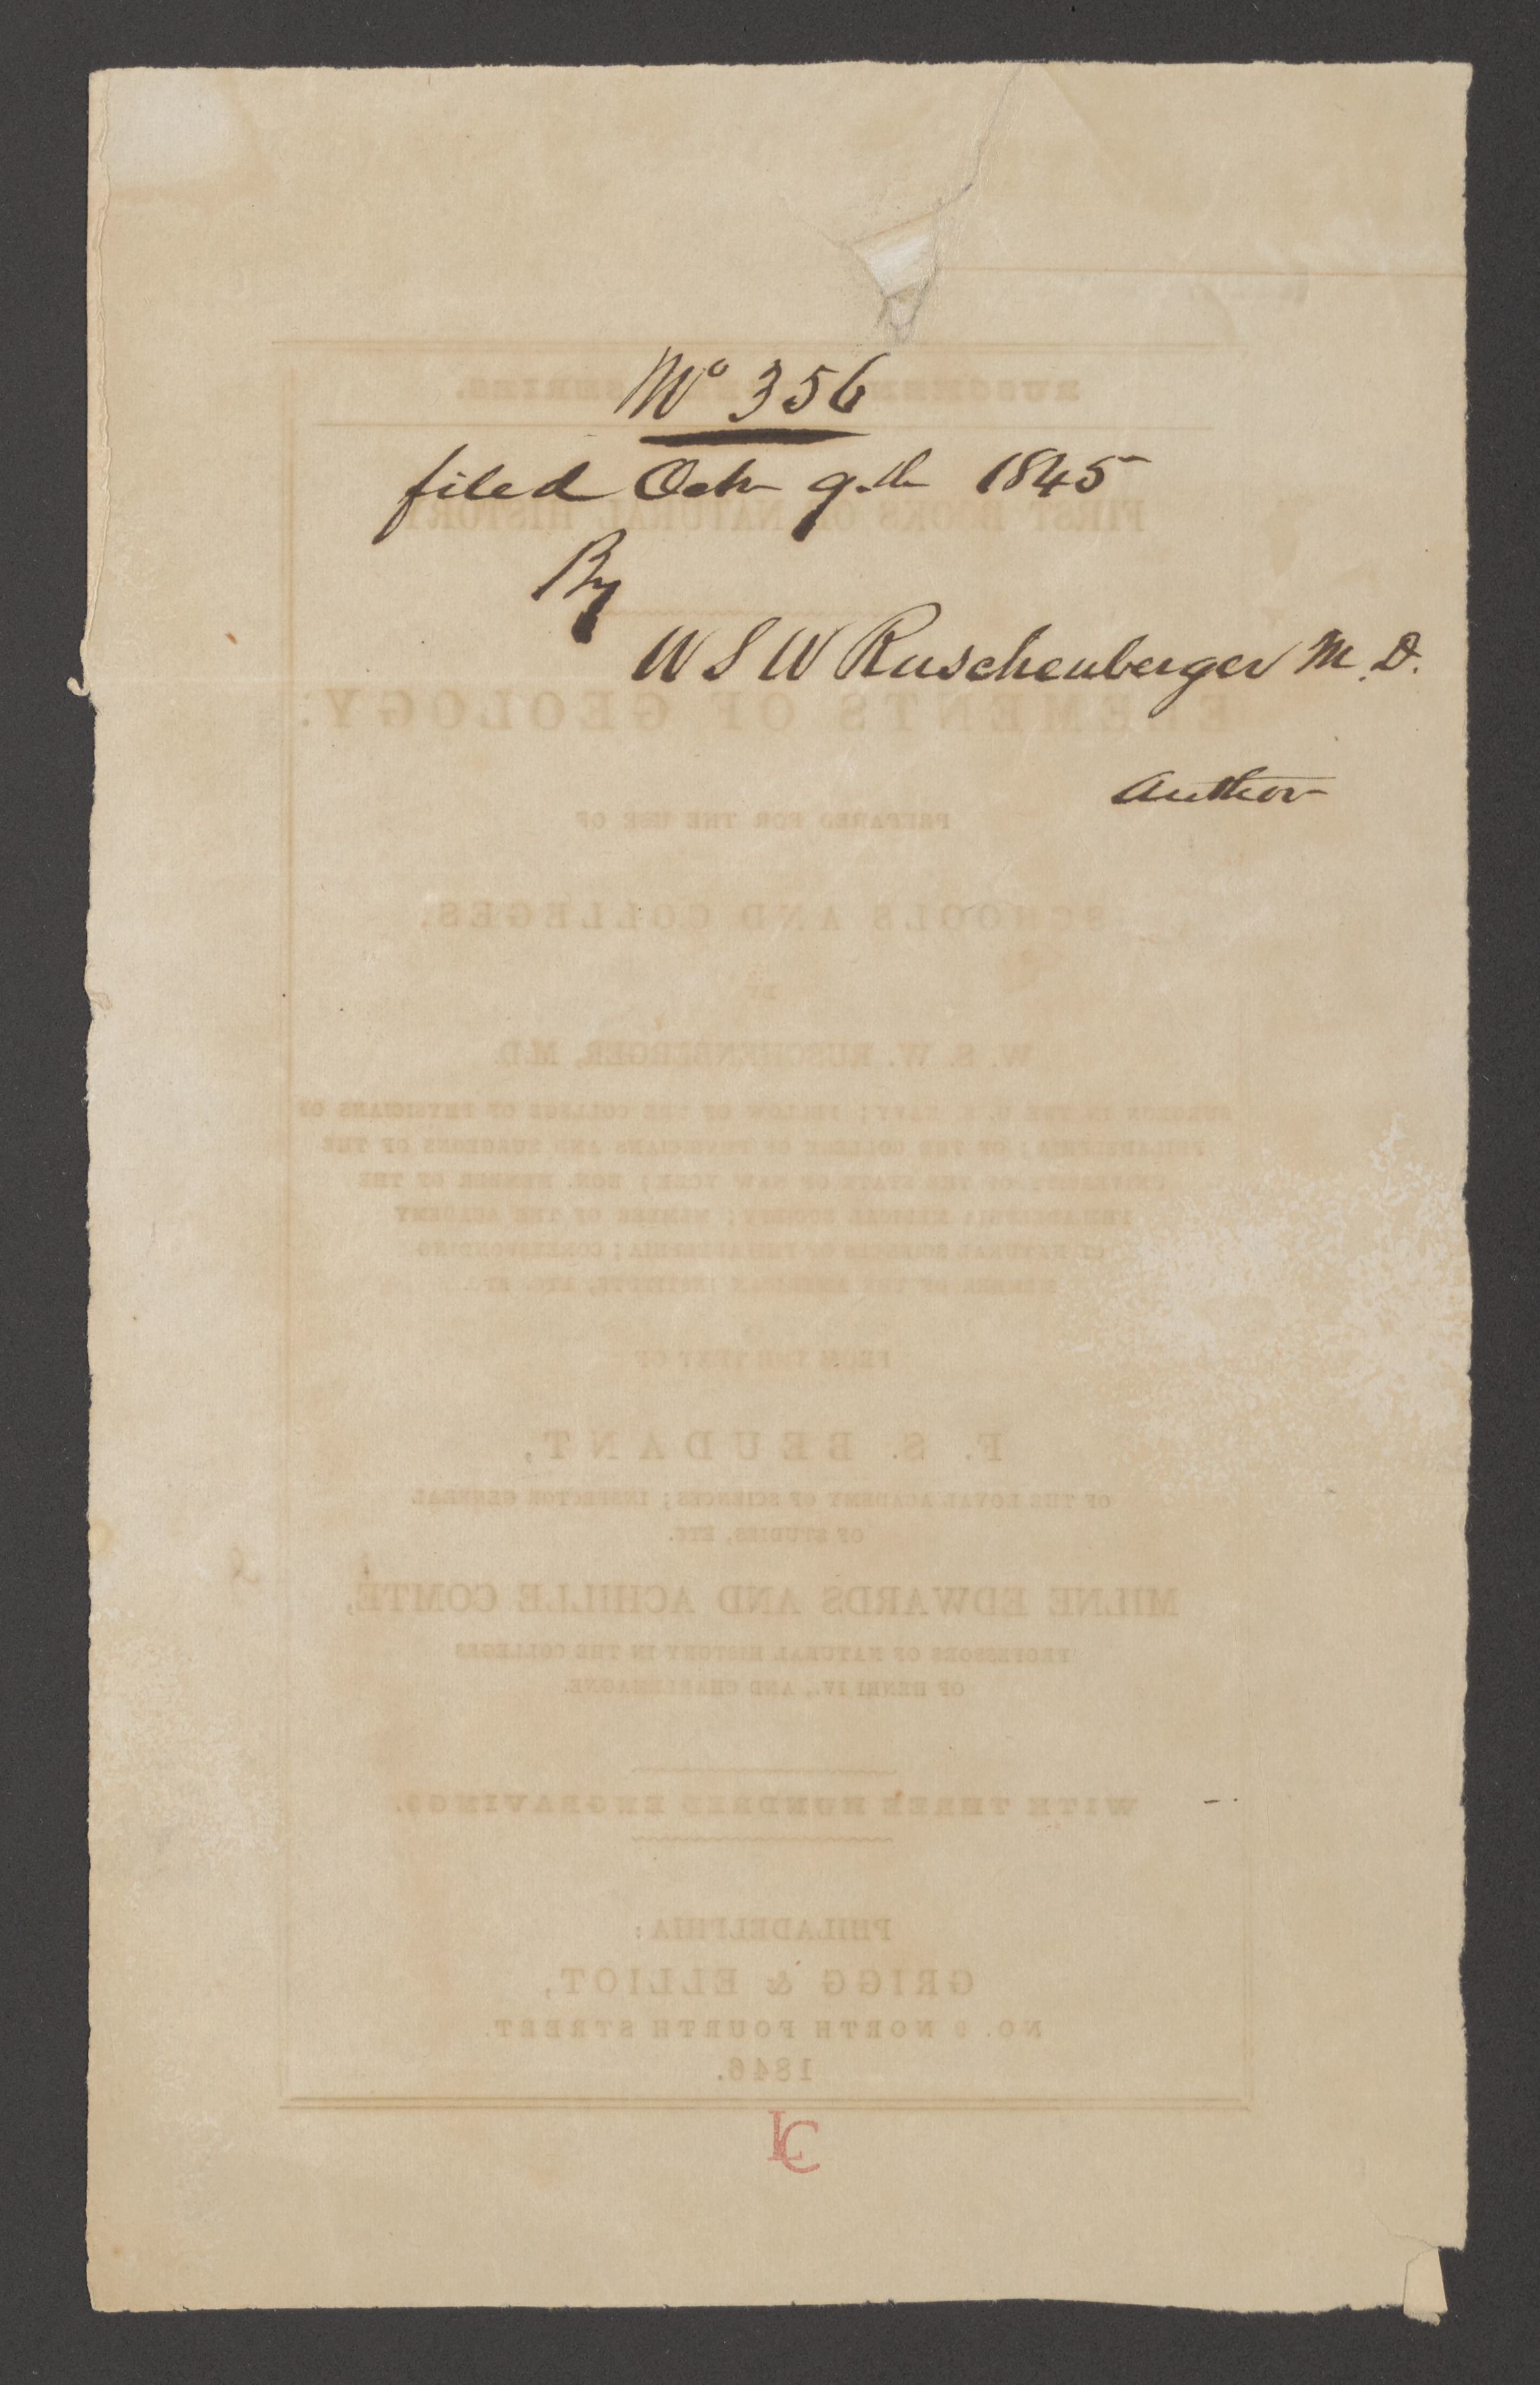 No 356
filed Oct 9th 1845
By
W S W Ruschenberger M.D.
Author
RUSCHENBERGER'S SERIES.
FIRST BOOKS OF NATURAL HISTORY.
ELEMENTS OF GEOLOGY:
PREPARED FOR THE USE OF
SCHOOLS AND COLLEGES.
BY
W. S. W. RUSCHENBERGER, M.D.
SURGEON IN THE U.S. NAVY; FELLOW OF THE COLLEGE OF PHYSICIANS OF
PHILADELPHIA; OF THE COLLEGE OF PHYSICIANS AND SURGEONS OF THE
UNIVERSITY OF THE STATE OF NEW YORK; HON. MEMBER OF THE
PHILADELPHIA MEDICAL SOCIETY; MEMBER OF THE ACADEMY
OF NATURAL SCIENCES OF PHILADELPHIA; CORRESPONDING
MEMBER OF THE AMERICAN INSTITUTE, ETC. ETC.
FROM THE TEXT OF
F. S. BEUDANT,
OF THE ROYAL ACADEMY OF SCIENCES; INSPECTOR GENERAL
OF STUDIES, ETC.
MILNE EDWARDS AND ACHILLE COMTE,
PROFESSORS OF NATURAL HISTORY IN THE COLLEGES
OF HENRI IV., AND CHARLEMAGNE.
WITH THREE HUNDRED ENGRAVINGS.
PHILADELPHIA:
GRIGG & ELLIOT,
NO. 9 NORTH FOURTH STREET.
1846.
LC